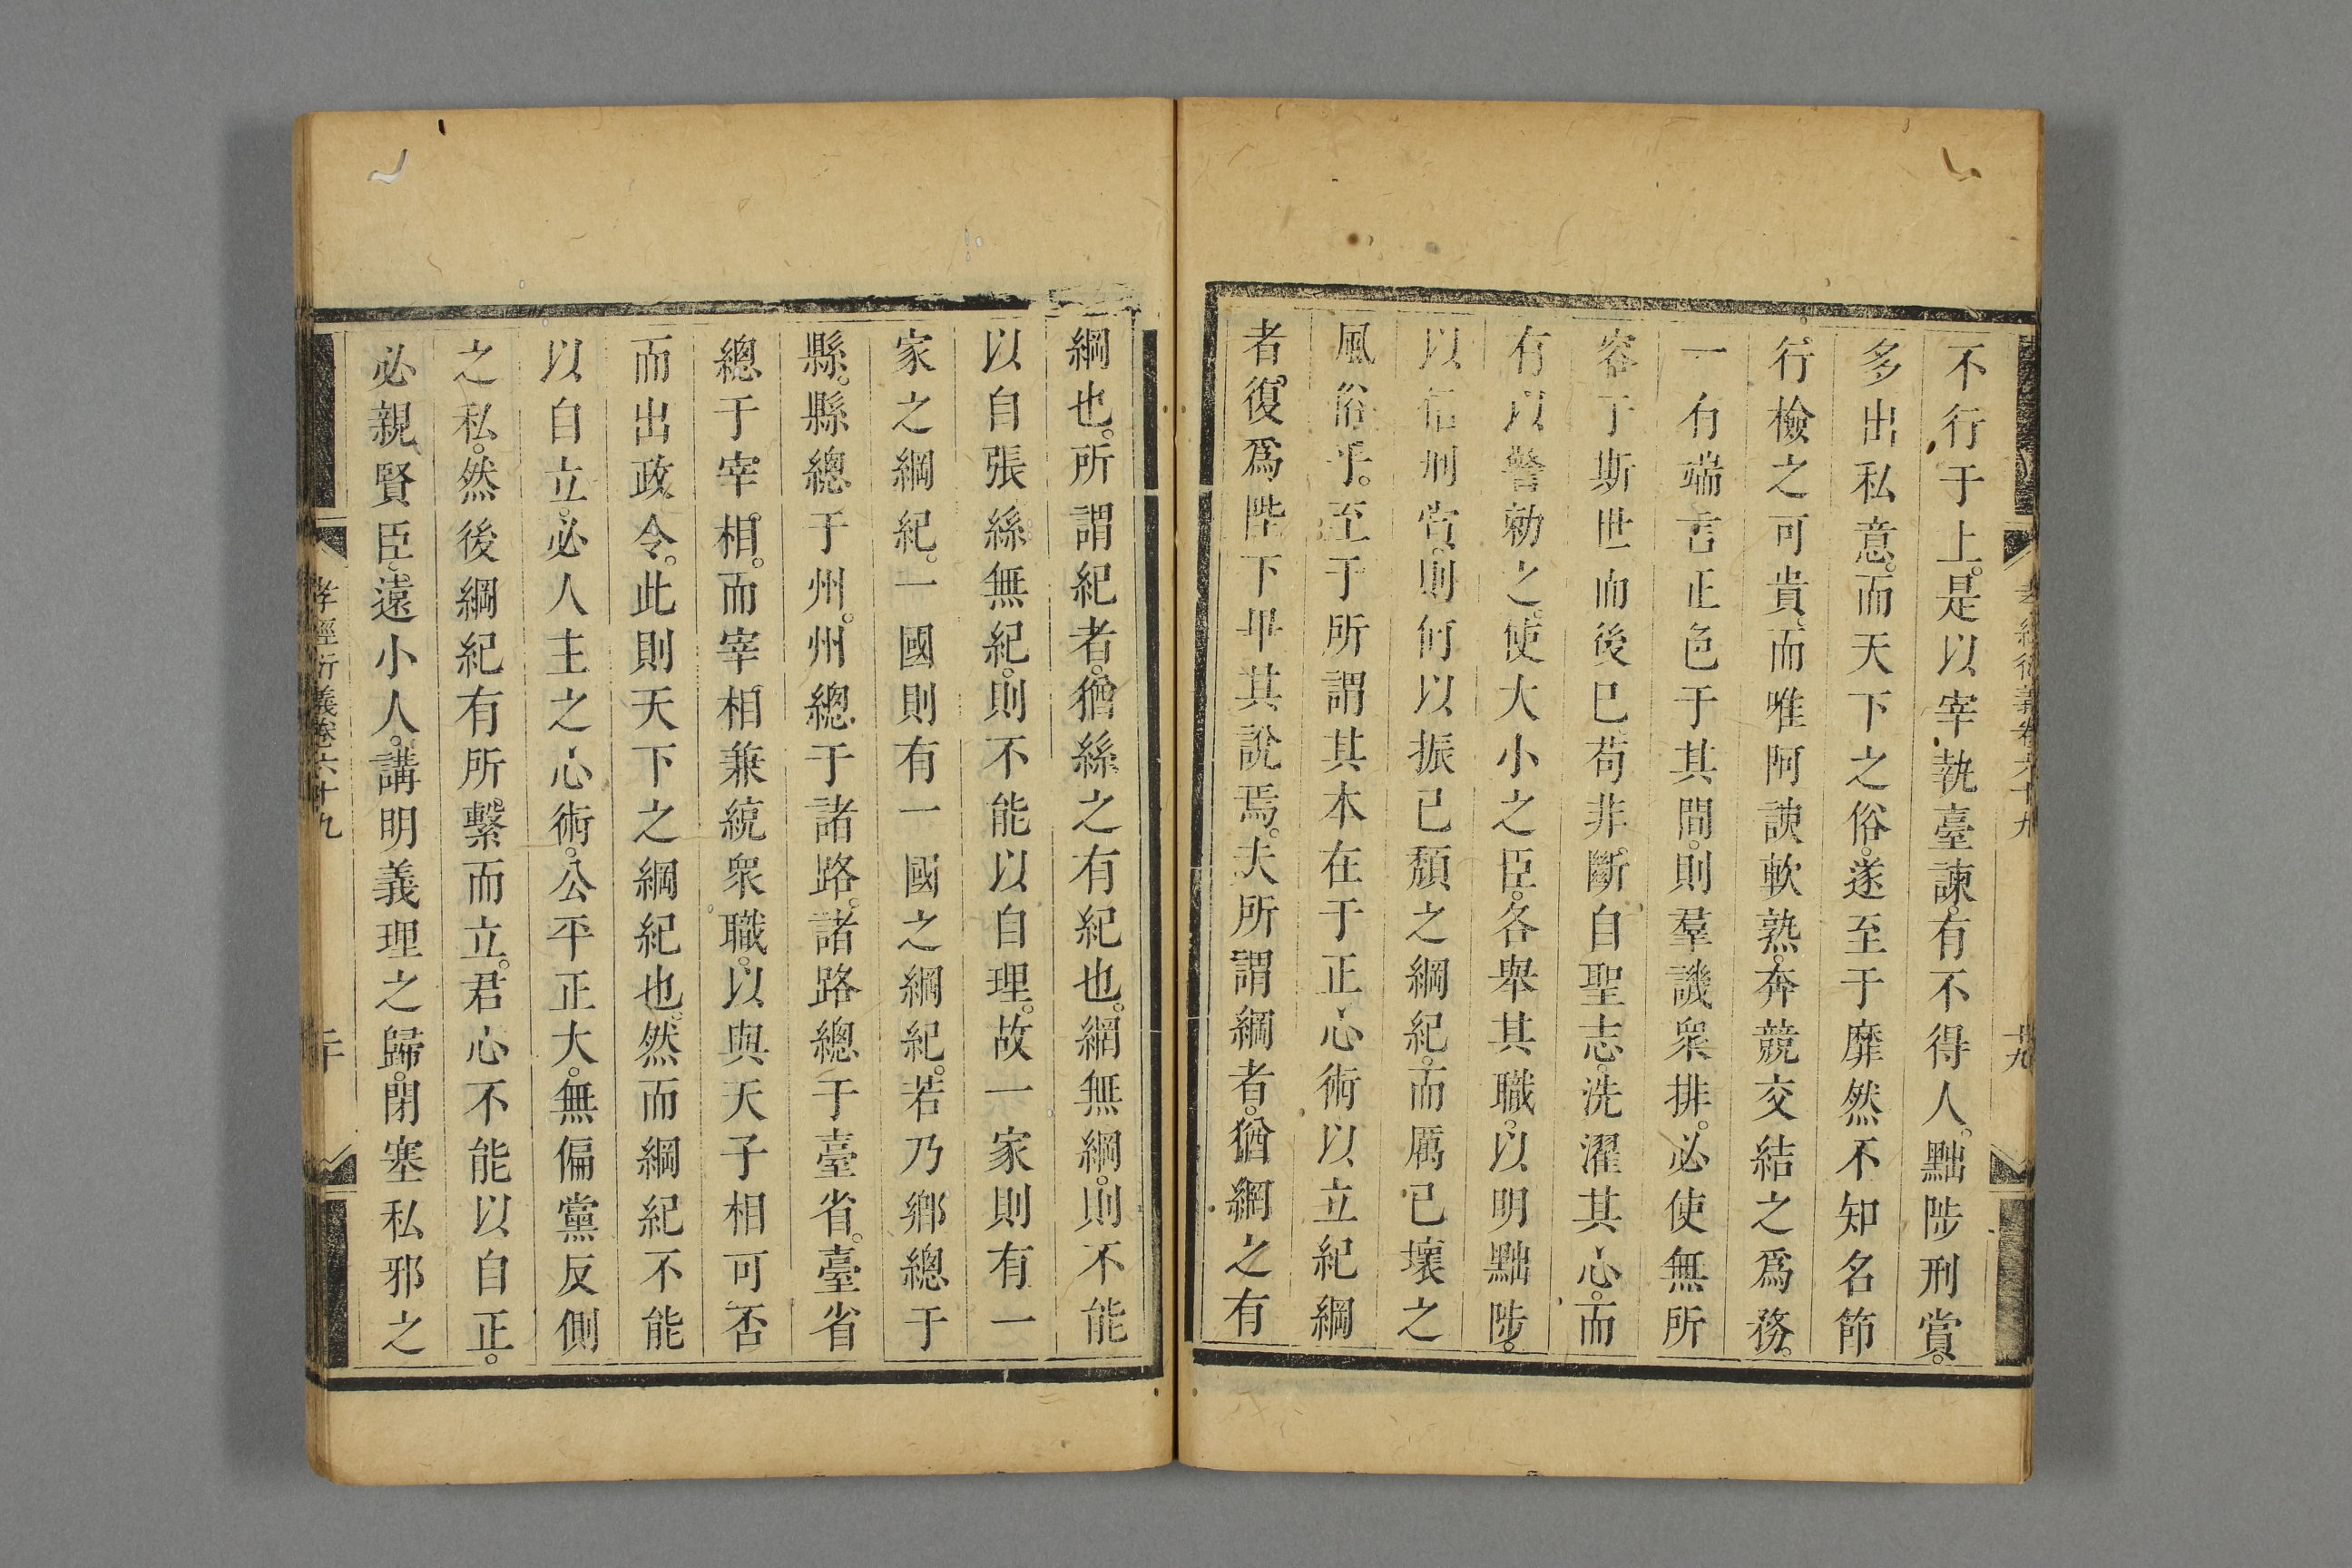 孝經衍義卷六十九
十九
不行于上。是以宰執臺諫。有不得人。黜陟刑賞。
多出私意。而天下之俗。遂至于靡然不知名節
行檢之可貴。而唯阿諛軟熟。奔競交結之爲務。
一有端言正色于其間。則羣譏衆排。必使無所
容于斯世而後已。苟非斷自聖志。洗濯其心。而
有以警勅之。使大小之臣。各舉其職。以明黜陟。
以信刑賞。則何以振已頹之綱紀。而厲已壞之
風俗乎。至于所謂其本在于正心術以立紀綱
者。復爲陛下畢其說焉。夫所謂綱者。猶網之有
綱也。所謂紀者。猶絲之有紀也。網無綱。則不能
以自張。絲無紀。則不能以自理。故一家則有一
家之綱紀。一國則有一國之綱紀。若乃鄉總于
縣。縣總于州。州總于諸路。諸路總于臺省。臺省
總于宰相。而宰相兼統衆職。以與天子相可否
而出政令。此則天下之綱紀也。然而綱紀不能
以自立。必人主之心術。公平正大。無偏黨反側
之私。然後綱紀有所繫而立。君心不能以自正。
必親賢臣。遠小人。講明義理之歸。閉塞私邪之
孝經衍義卷六十九
二十